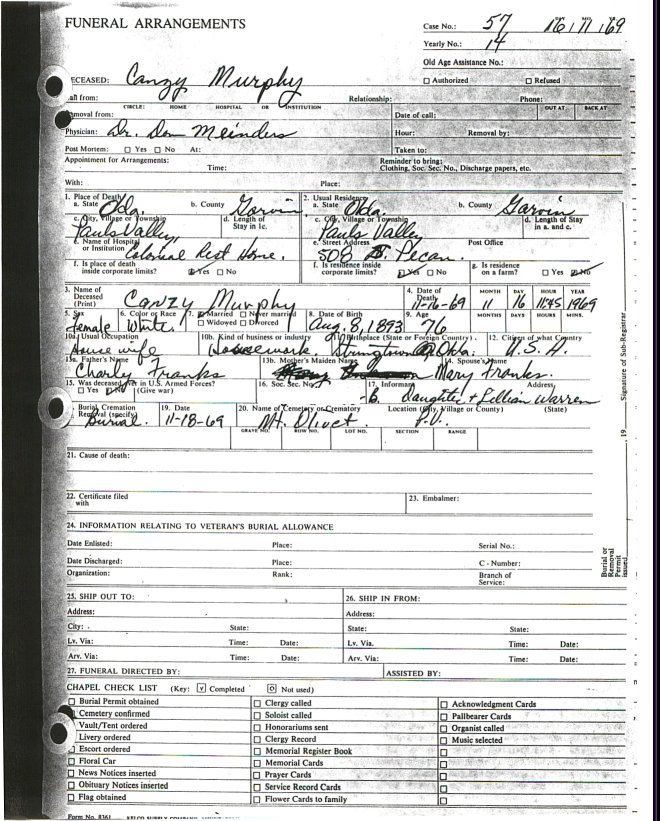 FUNERAL ARRANGEMENTS
Case No.: 57
Yearly No.: 14
Old Age Assistance No.:
DECEASED: Canzy Murphy
☐ Authorized ☐ Refused
Call from: Relationship: Phone:
CIRCLE: HOME HOSPITAL OR INSTITUTION OUT AT BACK AT
Removal from: Date of call:
Physician: Dr. Don Meinders Hour: Removal by:
Post Mortem: ☐ Yes ☐ No At: Taken to:
Appointment for Arrangements: Reminder to bring:
Time: Clothing, Soc. Sec. No., Discharge papers, etc.
With: Place:
1. Place of Death 2. Usual Residence
a. State Okla. b. County Garvin a. State Okla. b. County Garvin
c. City, Village or Township d. Length of Stay in 1c. c. City, Village or Township d. Length of Stay in a. and c.
Pauls Valley, Pauls Valley
e. Name of Hospital or Institution Colonial Rest Home. e. Street Address 508 Pecan. Post Office
f. Is place of death inside corporate limits? ☑ Yes ☐ No f. Is residence inside corporate limits? ☑ Yes ☐ No g. Is residence on a farm? ☐ Yes ☑ No
3. Name of Deceased (Print) Canzy Murphy 4. Date of Death 11-16-69 MONTH 11 DAY 16 HOUR 11:45 YEAR 1969
5. Sex 6. Color or Race 7. ☑ Married ☐ Never married 8. Date of Birth 9. Age MONTHS DAYS HOURS MINS.
Female White ☐ Widowed ☐ Divorced Aug. 8, 1893 76
10a. Usual Occupation 10b. Kind of business or industry 11. Birthplace (State or Foreign Country) 12. Citizen of what Country
House wife Housework. Stringtown Okla. U.S.A.
13a. Father's Name 13b. Mother's Maiden Name 14. Spouse's Name
Charly Franks Mary Franks.
15. Was deceased ever in U.S. Armed Forces? 16. Soc. Sec. No. 17. Informant Address
☐ Yes ☑ No (Give war) daughter + Lillian Warren
Burial, Cremation Removal (specify) 19. Date 20. Name of Cemetery or Crematory Location (City, Village or County) (State)
Burial. 11-18-69 Mt. Olivet P.V.
GRAVE NO. ROW NO. LOT NO. SECTION RANGE
21. Cause of death:
22. Certificate filed with 23. Embalmer:
24. INFORMATION RELATING TO VETERAN'S BURIAL ALLOWANCE
Date Enlisted: Place: Serial No.:
Date Discharged: Place: C - Number:
Organization: Rank: Branch of Service:
25. SHIP OUT TO: 26. SHIP IN FROM:
Address: Address:
City: State: State: State:
Lv. Via: Time: Date: Lv. Via. Time: Date:
Arv. Via: Time: Date: Arv. Via: Time: Date:
27. FUNERAL DIRECTED BY: ASSISTED BY:
CHAPEL CHECK LIST (Key: ☑ Completed ☐ Not used)
☐ Burial Permit obtained ☐ Clergy called ☐ Acknowledgment Cards
Cemetery confirmed ☐ Soloist called ☐ Pallbearer Cards
Vault/Tent ordered ☐ Honorariums sent ☐ Organist called
Livery ordered ☐ Clergy Record ☐ Music selected
☐ Escort ordered ☐ Memorial Register Book ☐
☐ Floral Car ☐ Memorial Cards ☐
☐ News Notices inserted ☐ Prayer Cards ☐
☐ Obituary Notices inserted ☐ Service Record Cards ☐
☐ Flag obtained ☐ Flower Cards to family ☐
Form No. 8361
Signature of Sub-Registrar
, 19
Burial or Removal Permit issued